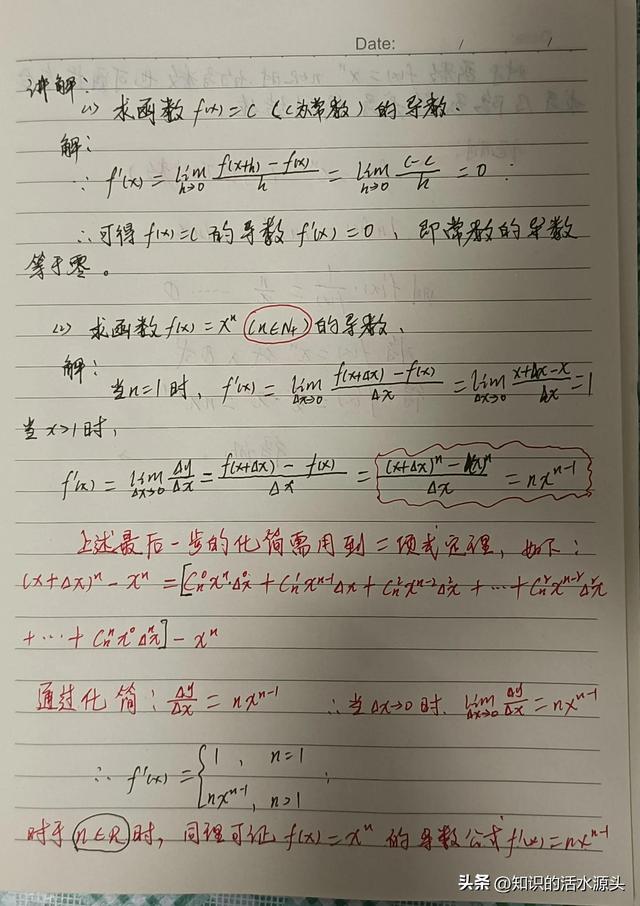 Date: / /
讲解:
(1) 求函数 f(x)=C (C为常数) 的导数.
解:
∵ f'(x) = lim h→0 (f(x+h) - f(x))/h = lim h→0 (C-C)/h = 0 ;
∴可得 f(x)=C 的导数 f'(x)=0, 即常数的导数
等于零。
(2) 求函数 f(x)=xⁿ (n∈N₊) 的导数.
解:
当n=1时, f'(x) = lim Δx→0 (f(x+Δx) - f(x))/Δx = lim Δx→0 (x+Δx-x)/Δx = 1
当x>1时,
f'(x) = lim Δx→0 Δy/Δx = (f(x+Δx) - f(x))/Δx = ((x+Δx)ⁿ - (x)ⁿ)/Δx = nxⁿ⁻¹
上述最后一步的化简需用到二项式定理, 如下:
(x+Δx)ⁿ - xⁿ = [Cₙ⁰xⁿΔx⁰ + Cₙ¹xⁿ⁻¹Δx + Cₙ²xⁿ⁻²Δx² + ⋯ + Cₙʳxⁿ⁻ʳΔxʳ
+ ⋯ + Cₙⁿx⁰Δxⁿ] - xⁿ
通过化简: Δy/Δx = nxⁿ⁻¹ ∴当Δx→0时. lim Δx→0 Δy/Δx = nxⁿ⁻¹
∴ f'(x) = { 1, n=1 ;
nxⁿ⁻¹, n>1
对于 n∈R 时, 同理可证 f(x)=xⁿ 的导数公式 f'(x)=nxⁿ⁻¹
头条 @知识的活水源头